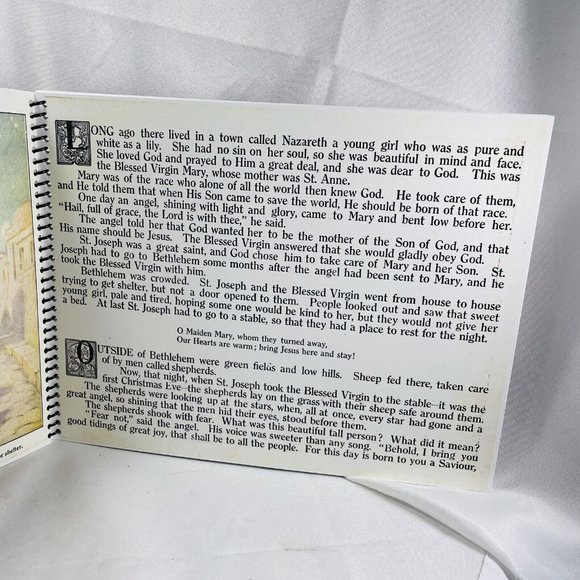 LONG ago there lived in a town called Nazareth a young girl who was as pure and
white as a lily. She had no sin on her soul, so she was beautiful in mind and face.
She loved God and prayed to Him a great deal, and she was dear to God. This was
the Blessed Virgin Mary, whose mother was St. Anne.
Mary was of the race who alone of all the world then knew God. He took care of them,
and He told them that when His Son came to save the world, He should be born of that race.
One day an angel, shining with light and glory, came to Mary and bent low before her.
"Hail, full of grace, the Lord is with thee," he said.
The angel told her that God wanted her to be the mother of the Son of God, and that
His name should be Jesus. The Blessed Virgin answered that she would gladly obey God.
St. Joseph was a great saint, and God chose him to take care of Mary and her Son. St.
Joseph had to go to Bethlehem some months after the angel had been sent to Mary, and he
took the Blessed Virgin with him.
Bethlehem was crowded. St. Joseph and the Blessed Virgin went from house to house
trying to get shelter, but not a door opened to them. People looked out and saw that sweet
young girl, pale and tired, hoping some one would be kind to her, but they would not give her
a bed. At last St. Joseph had to go to a stable, so that they had a place to rest for the night.
O Maiden Mary, whom they turned away,
Our Hearts are warm; bring Jesus here and stay!
OUTSIDE of Bethlehem were green fields and low hills. Sheep fed there, taken care
of by men called shepherds.
Now, that night, when St. Joseph took the Blessed Virgin to the stable—it was the
first Christmas Eve—the shepherds lay on the grass with their sheep safe around them.
The shepherds were looking up at the stars, when, all at once, every star had gone and a
great angel, so shining that the men hid their eyes, stood before them.
The shepherds shook with fear. What was this beautiful tall person? What did it mean?
"Fear not," said the angel. His voice was sweeter than any song. "Behold, I bring you
good tidings of great joy, that shall be to all the people. For this day is born to you a Saviour,
shelter.